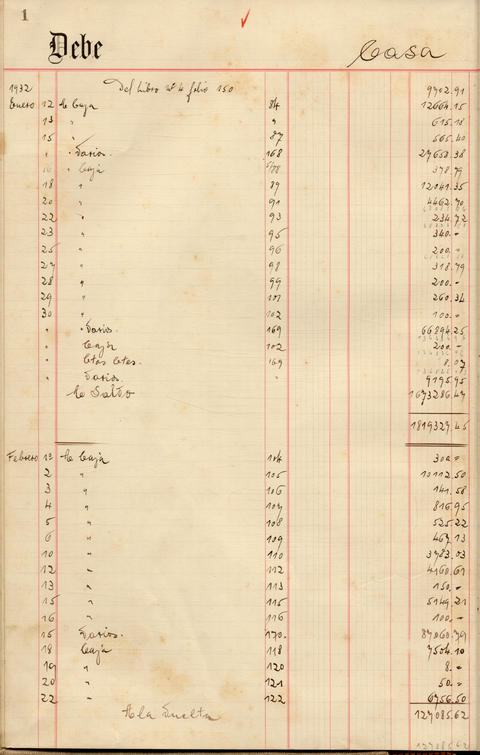 1
Debe Casa
1932 Del Libro nº 4 folio 150 9702.91
Enero 12 A Caja 84 12664.15
13 " " 615.18
15 " 87 565.40
" " Varios. 168 27658.38
16 " Caja 378.79
18 " 89 12041.35
20 " 91 4462.70
22 " 93 234.72
23 " 95 340.-
25 " 96 200.-
27 " 98 318.79
28 " 99 200.-
29 " 101 260.34
30 " 102 100.-
" " Varios. 169 66894.25
" Caja 102 200.-
" Ctas Ctes. 169 8.07
" Varios. " 9195.95
A Saldo 1673286.47
1819327.45
Febrero 1º A Caja 104 300.-
2 " 105 10112.50
3 " 106 141.58
4 " 107 816.95
5 " 108 525.22
6 " 109 467.13
10 " 110 3783.03
12 " 112 4160.61
13 " 113 150.-
15 " 115 5149.21
16 " 116 100.-
15 Varios. 170 87060.79
18 Caja 118 7504.10
19 " 120 8.-
20 " 121 50.-
22 " 122 6756.50
A la Vuelta 127085.62